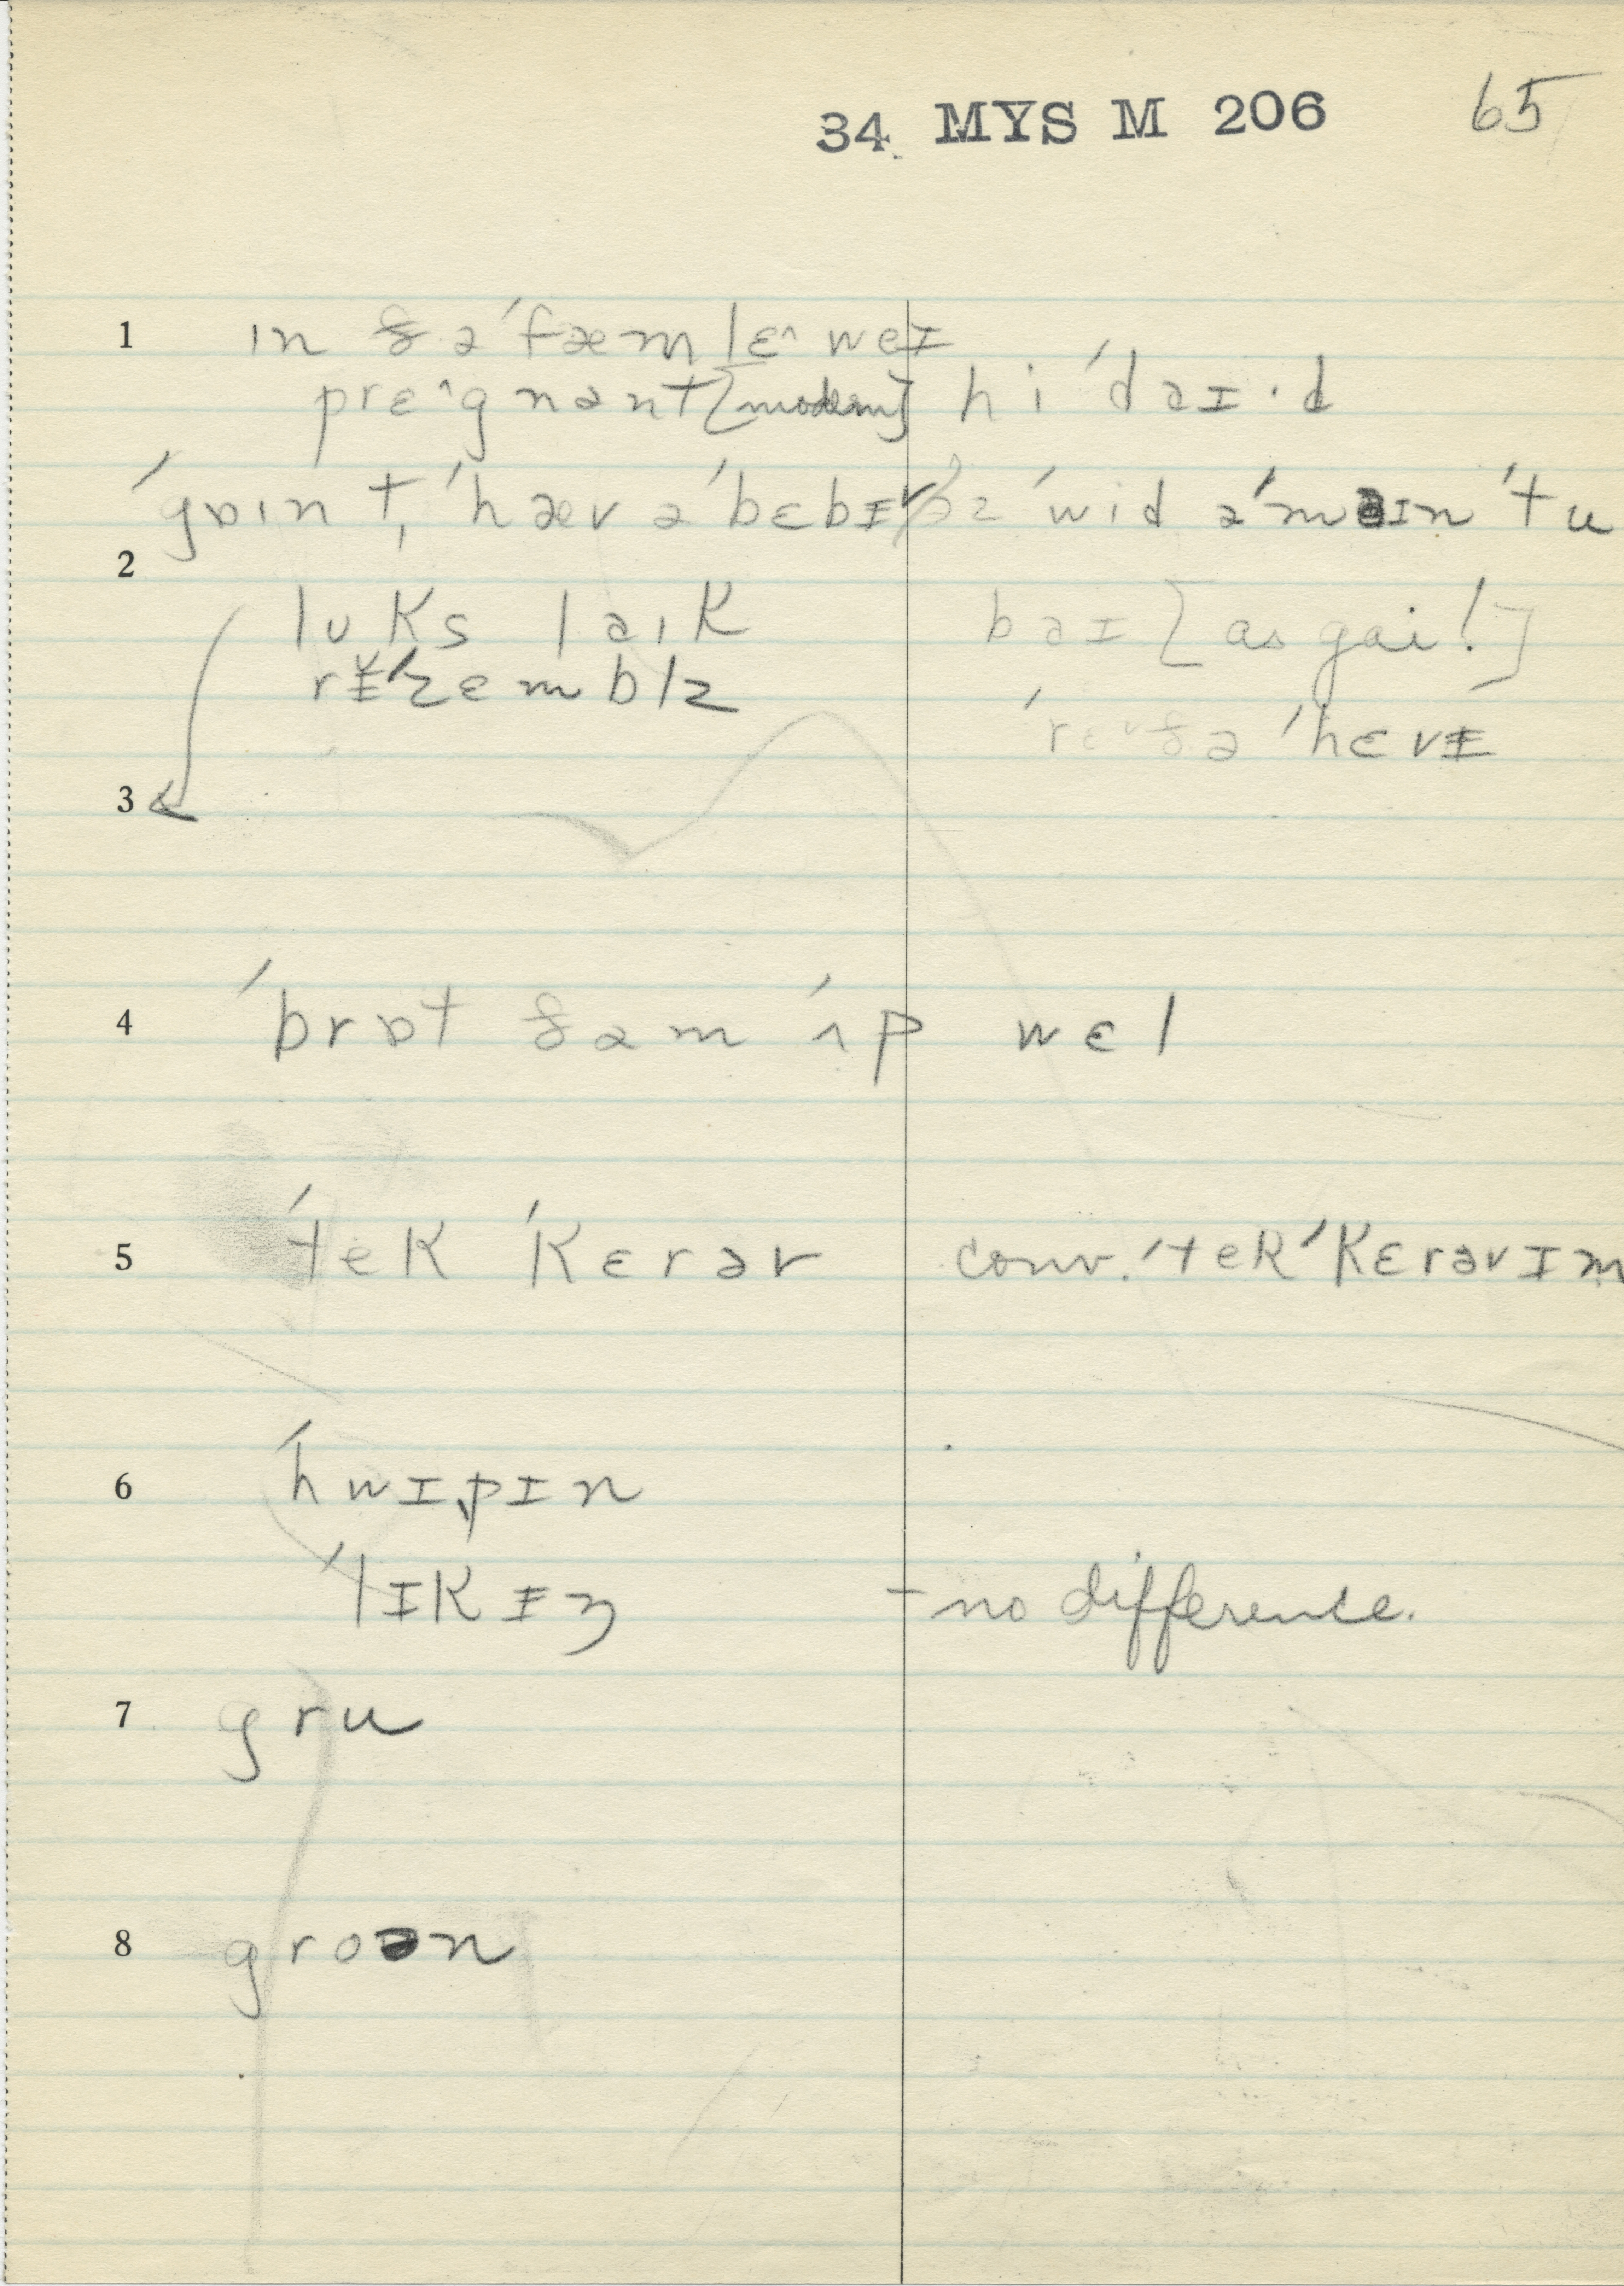 34 MYS M 206 65
1 ɪn ðə ˈfæmlɛ^ weɪ
prɛ^gnənt [modern] hi ˈdəɪ·d
ˈgɒɪn t, ˈhæv ə ˈbɛbɪ ˈwid ə ˈməɪn ˈtu
2
lʊks ləɪk bəɪ [as gai!]
rɨˈzɛmblz
ˈrɛvðə ˈhɛvɨ
3
4 ˈbrɒt ðəm ˈʌp wɛl
5 ˈtek ˈkɛrəv conv. ˈtek ˈkɛrəvɪm
6 ˈhwɪpɪn
ˈlɪkɨŋ – no difference.
7 gru
8 groən